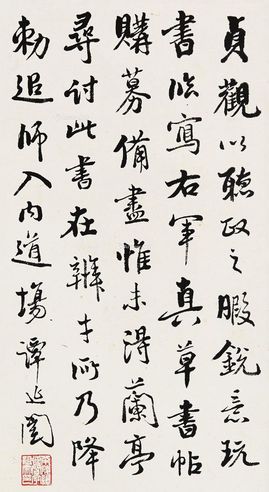 貞觀以聽政之暇銳意玩
書臨寫右軍真草書帖
購募備盡惟未得蘭亭
尋討此書在辯才所乃降
勅追師入內道場譚延闓